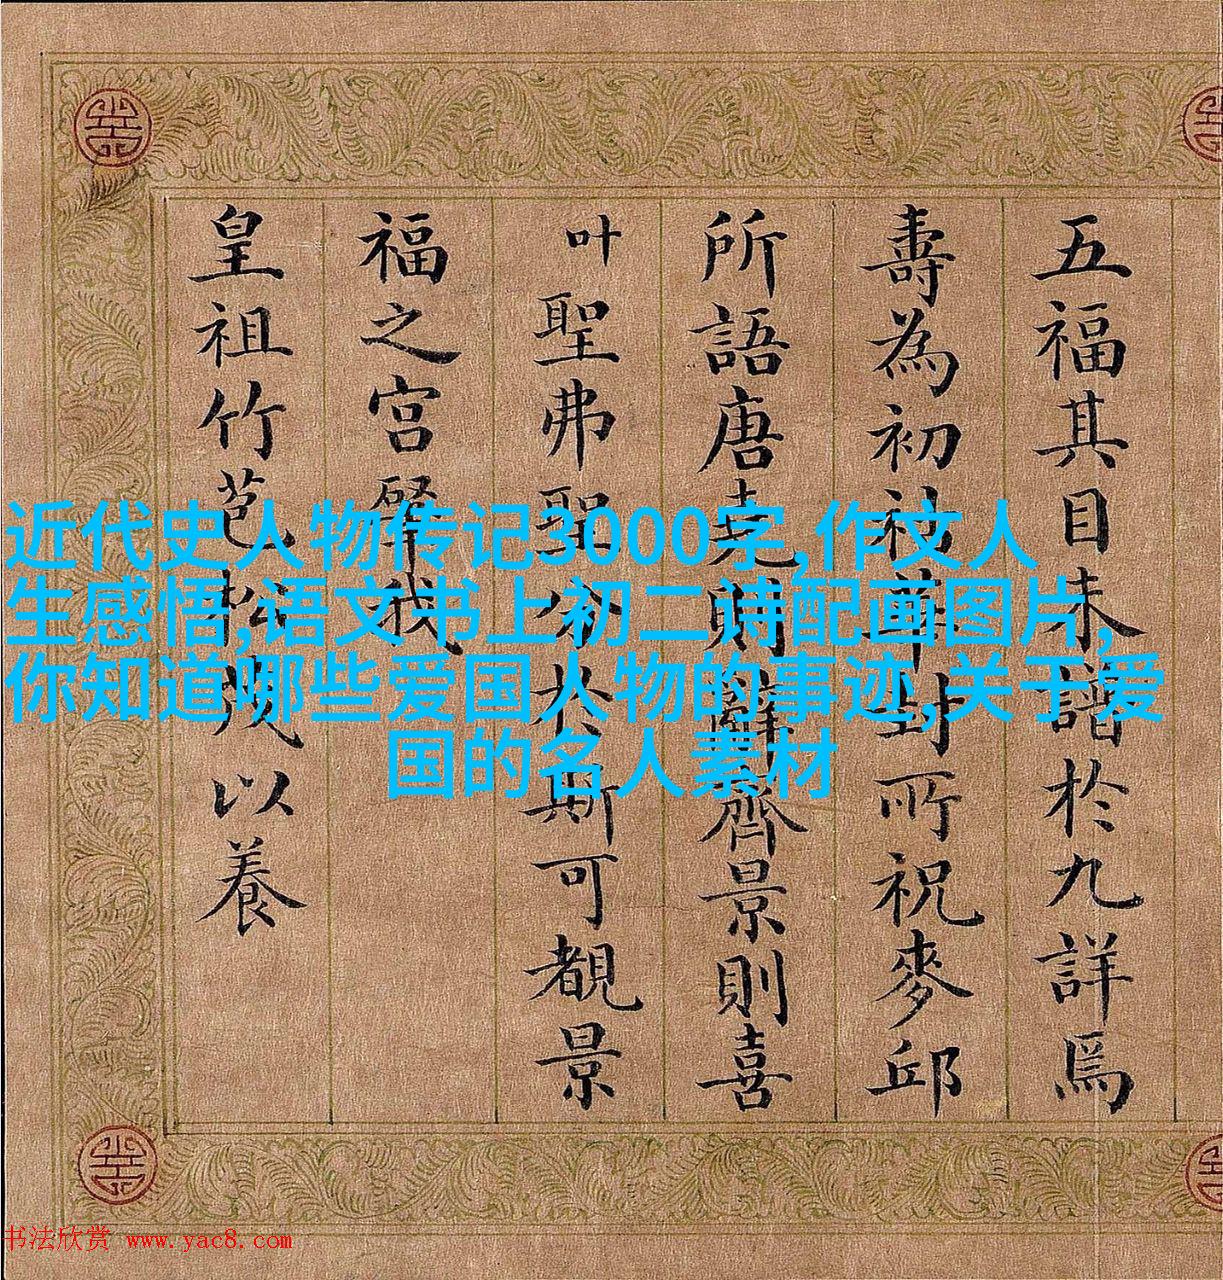 五福其目未於九詳焉
壽為初祉華封所祝麥邱
所語唐堯則辭齊景則喜
叶聖弗聖於斯可覩景
福之宮肇我
皇祖竹苞松茂以養
近代史人物传记3000字,作文人
生感悟,语文书上初二诗配画图片,
你知道哪些爱国人物的事迹,关于爱
国的名人素材
书法欣赏 www.yac8.com